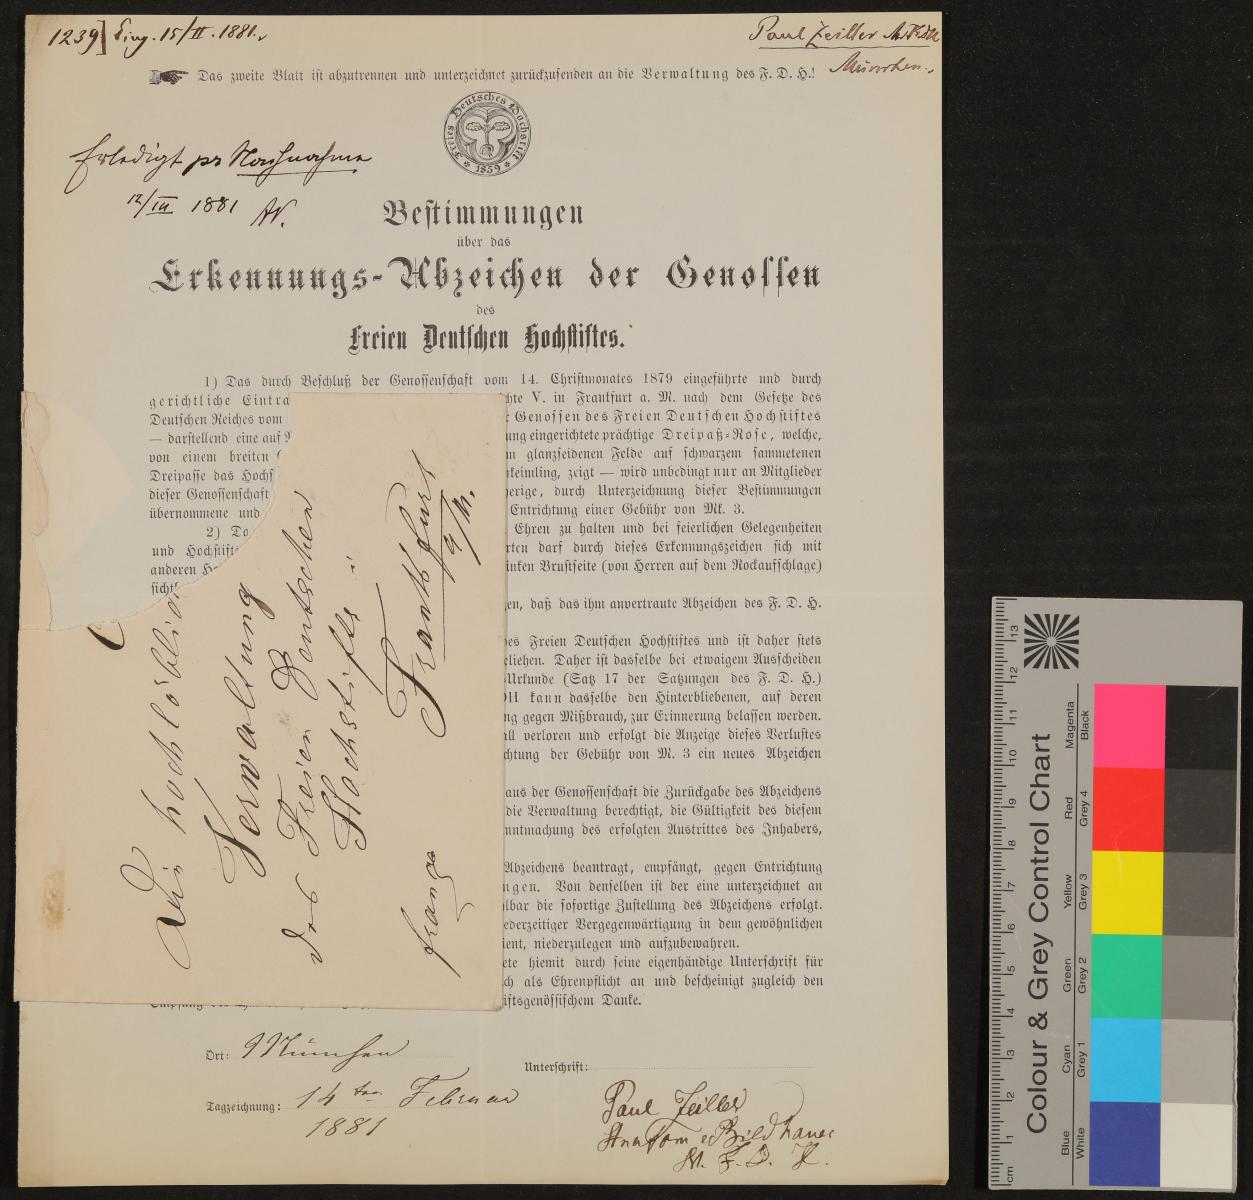 1239] Eing. 15/II. 1881.
Paul Zeiller
München.
Das zweite Blatt ist abzutrennen und unterzeichnet zurückzusenden an die Verwaltung des F. D. H.!
Freies Deutsches Hochstift * 1859 *
Erledigt pr Nachnahme
12/III 1881
Bestimmungen
über das
Erkennungs-Abzeichen der Genossen
des
Freien Deutschen Hochstiftes.
1) Das durch Beschluß der Genossenschaft vom 14. Christmonates 1879 eingeführte und durch
gerichtliche Eintra chte V. in Frankfurt a. M. nach dem Gesetze des
Deutschen Reiches vom Genossen des Freien Deutschen Hochstiftes
— darstellend eine auf ung eingerichtete prächtige Dreipaß-Rose, welche,
von einem breiten m glanzseidenen Felde auf schwarzem sammetenen
Dreipasse das Hochs nkeimling, zeigt — wird unbedingt nur an Mitglieder
dieser Genossenschaft herige, durch Unterzeichnung dieser Bestimmungen
übernommene und Entrichtung einer Gebühr von Mk. 3.
2) Da Ehren zu halten und bei feierlichen Gelegenheiten
und Hochstifts rten darf durch dieses Erkennungszeichen sich mit
anderen Ho inken Brustseite (von Herren auf dem Rockaufschlage)
sichtl
en, daß das ihm anvertraute Abzeichen des F. D. H.
des Freien Deutschen Hochstiftes und ist daher stets
eliehen. Daher ist dasselbe bei etwaigem Ausscheiden
-Urkunde (Satz 17 der Satzungen des F. D. H.)
DH kann dasselbe den Hinterbliebenen, auf deren
ng gegen Mißbrauch, zur Erinnerung belassen werden.
all verloren und erfolgt die Anzeige dieses Verlustes
chtung der Gebühr von M. 3 ein neues Abzeichen
aus der Genossenschaft die Zurückgabe des Abzeichens
die Verwaltung berechtigt, die Gültigkeit des diesem
nntmachung des erfolgten Austrittes des Inhabers,
Abzeichens beantragt, empfängt, gegen Entrichtung
ngen. Von denselben ist der eine unterzeichnet an
lbar die sofortige Zustellung des Abzeichens erfolgt.
ederzeitiger Vergegenwärtigung in dem gewöhnlichen
ient, niederzulegen und aufzubewahren.
ete hiemit durch seine eigenhändige Unterschrift für
ch als Ehrenpflicht an und bescheinigt zugleich den
iftsgenössischem Danke.
hochlöbliche
Verwaltung
des Freien Deutschen
Hochstiftes
Frankfurt
a/M.
franco
Ort: München
Unterschrift:
Tagzeichnung: 14 ten Februar
1881
Paul Zeiller
Anatom. Bildhauer
M. F. D. H.
Colour & Grey Control Chart
Blue Cyan Green Yellow Red Magenta
White Grey 1 Grey 2 Grey 3 Grey 4 Black
cm 1 2 3 4 5 6 7 8 9 10 11 12 13